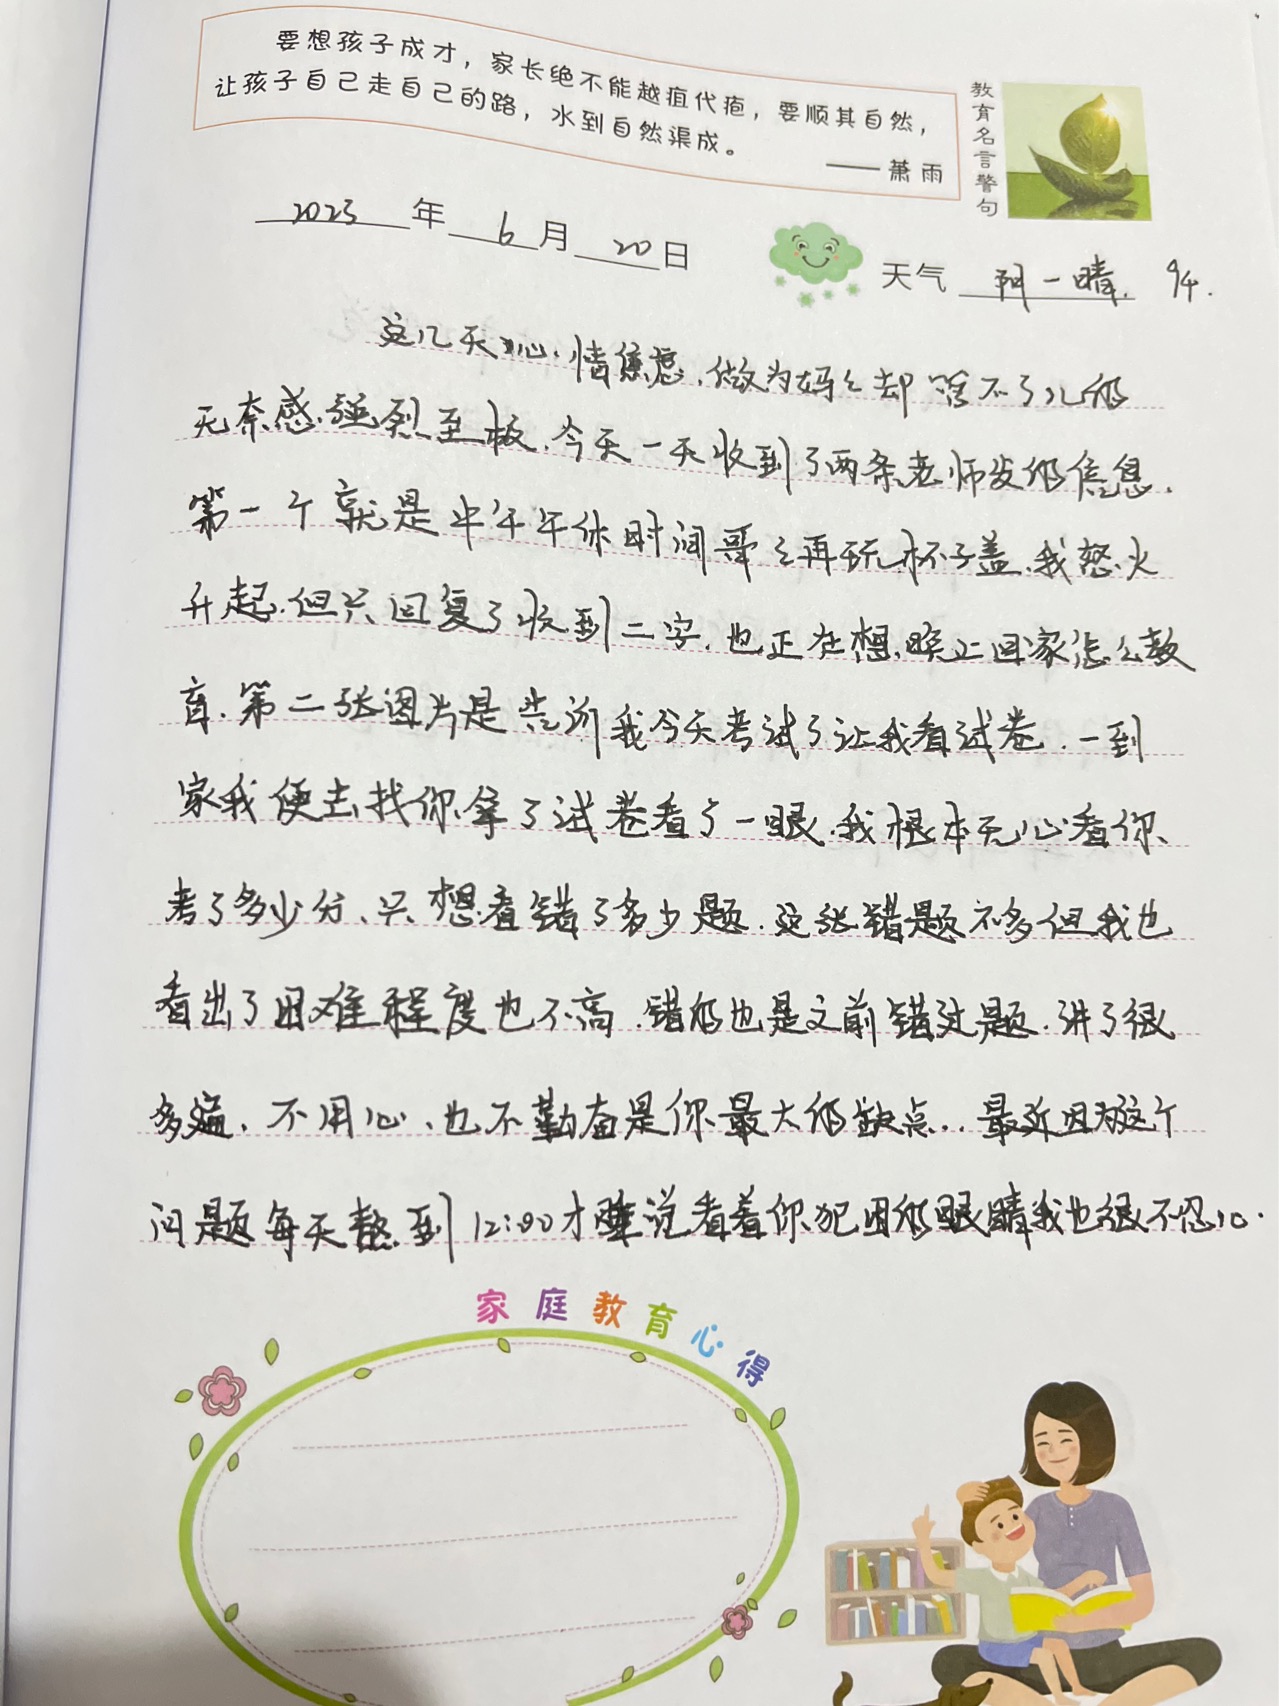 要想孩子成才，家长绝不能越疽代疱，要顺其自然，
让孩子自己走自己的路，水到自然渠成。
——萧雨
教育名言警句
2023年6月20日
天气 阴-晴. 94.
这几天心情焦虑.做为妈々却啥不了儿的
无奈感.强烈至极.今天一天收到了两条老师发的信息.
第一个就是中午午休时间哥々再玩杯子盖.我怒火
升起.但只回复了收到二字.也正在想.晚上回家怎么教
育.第二张图片是告诉我今天考试了让我看试卷.一到
家我便去找你.拿了试卷看了一眼.我根本无心看你
考了多少分、只想看错了多少题.这张错题不多但我也
看出了困难程度也不高.错的也是之前错过题.讲了很
多遍.不用心.也不勤奋是你最大的缺点..最近因为这个
问题每天熬到12:00才睡说看着你犯困的眼睛我也很不忍心.
家庭教育心得